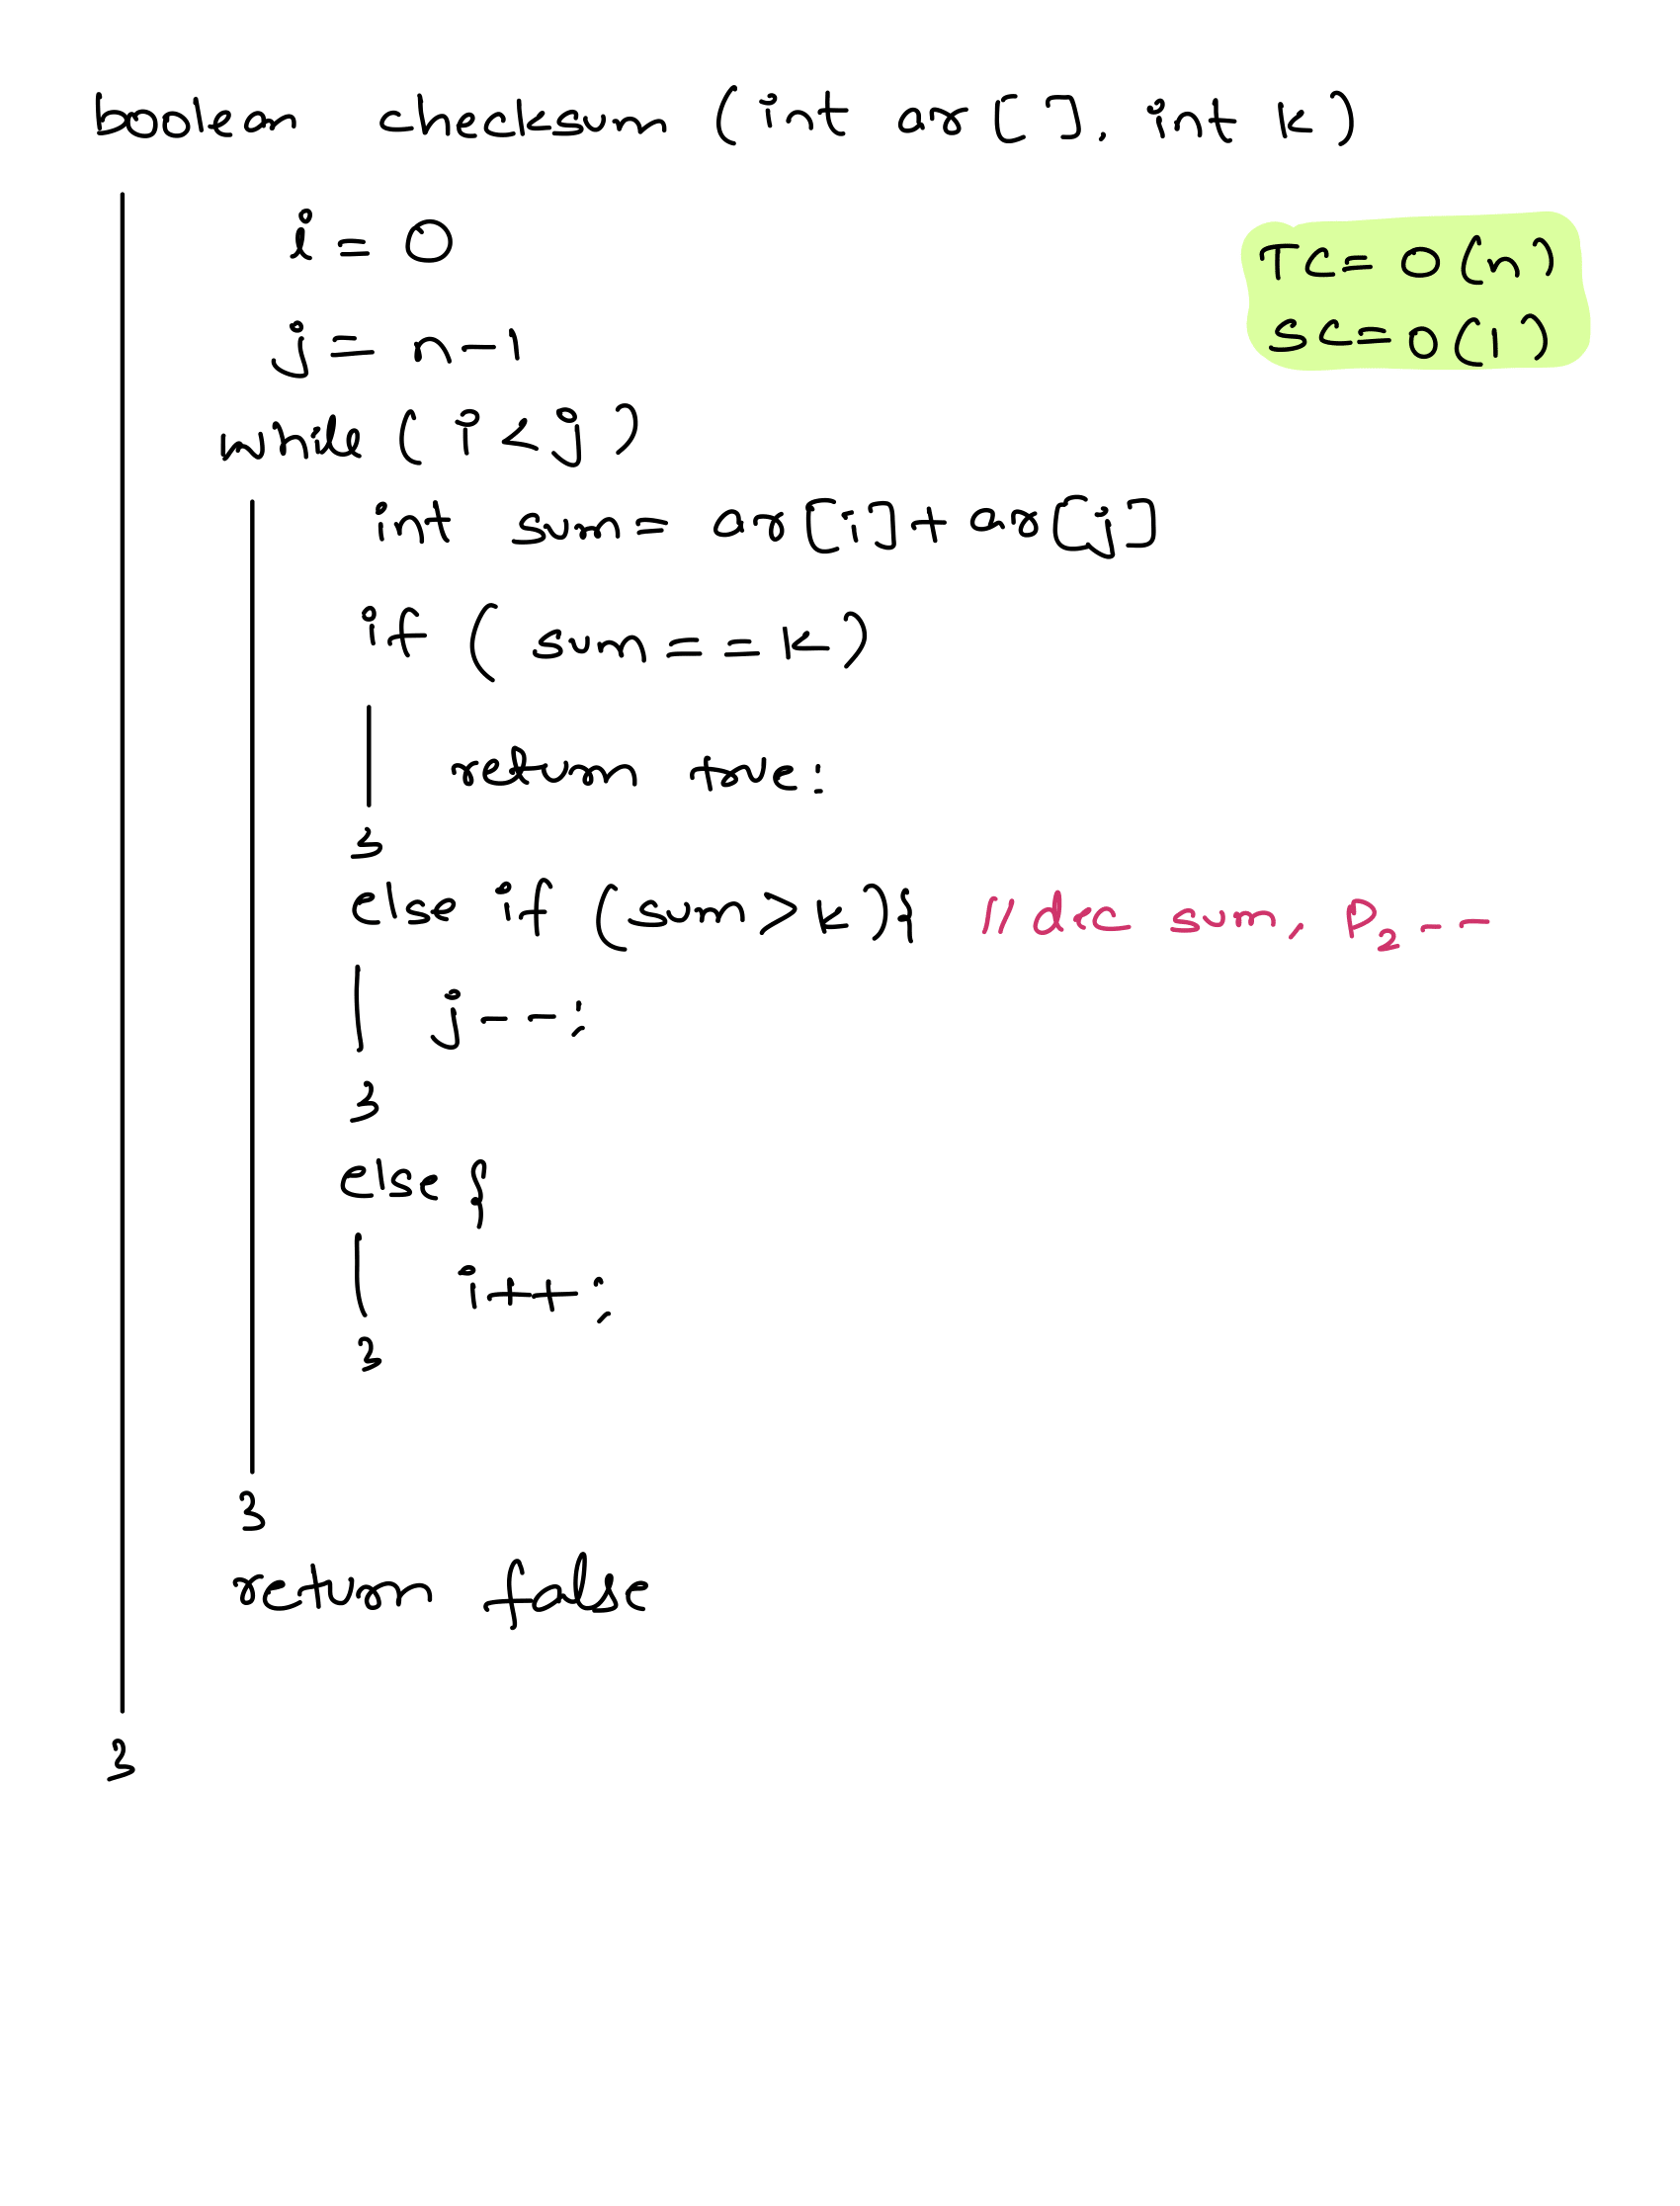 boolean checksum (int ar[], int k)
i = 0
TC = O(n)
j = n-1
SC = O(1)
while (i < j)
int sum = ar[i] + ar[j]
if (sum == k)
return true;
}
else if (sum > k){ // dec sum, P2--
j--;
}
else {
i++;
}
}
return false
}